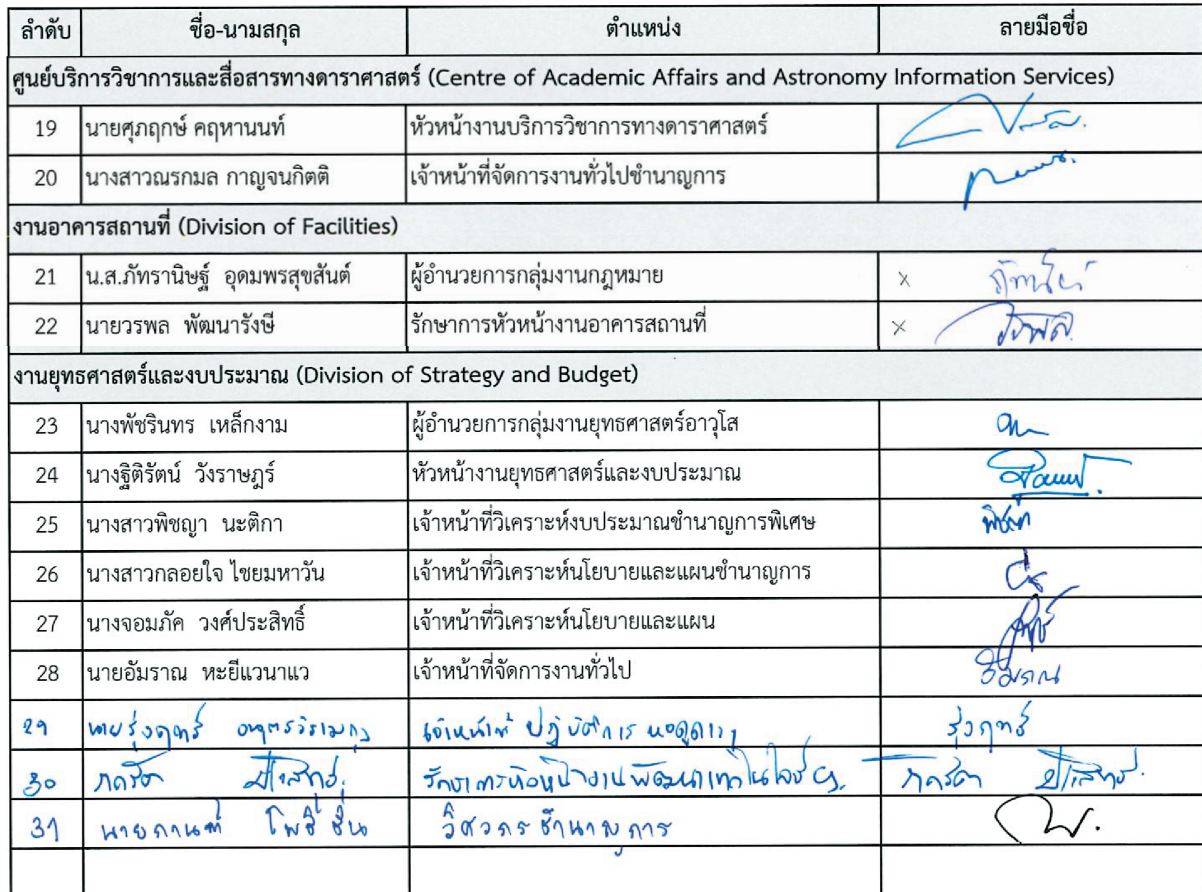 ลำดับ ชื่อ-นามสกุล ตำแหน่ง ลายมือชื่อ
ศูนย์บริการวิชาการและสื่อสารทางดาราศาสตร์ (Centre of Academic Affairs and Astronomy Information Services)
19 นายศุภฤกษ์ คฤหานนท์ หัวหน้างานบริการวิชาการทางดาราศาสตร์
20 นางสาวณรกมล กาญจนกิตติ เจ้าหน้าที่จัดการงานทั่วไปชำนาญการ
งานอาคารสถานที่ (Division of Facilities)
21 น.ส.ภัทรานิษฐ์ อุดมพรสุขสันต์ ผู้อำนวยการกลุ่มงานกฎหมาย x
22 นายวรพล พัฒนารังษี รักษาการหัวหน้างานอาคารสถานที่ x วรพล
งานยุทธศาสตร์และงบประมาณ (Division of Strategy and Budget)
23 นางพัชรินทร เหล็กงาม ผู้อำนวยการกลุ่มงานยุทธศาสตร์อาวุโส
24 นางฐิติรัตน์ วังราษฎร์ หัวหน้างานยุทธศาสตร์และงบประมาณ
25 นางสาวพิชญา นะติกา เจ้าหน้าที่วิเคราะห์งบประมาณชำนาญการพิเศษ พิชญา
26 นางสาวกลอยใจ ไชยมหาวัน เจ้าหน้าที่วิเคราะห์นโยบายและแผนชำนาญการ
27 นางจอมภัค วงศ์ประสิทธิ์ เจ้าหน้าที่วิเคราะห์นโยบายและแผน
28 นายอัมราณ หะยีแวนาแว เจ้าหน้าที่จัดการงานทั่วไป อัมราณ
29 นายรุ่งฤทธิ์ เจ้าหน้าที่ ปฏิบัติการ หอดูดาว รุ่งฤทธิ์
30 รักษาการหัวหน้างานพัฒนาเทคโนโลยีฯ
31 นายกานต์ โพธิ์ชื่น วิศวกรชำนาญการ